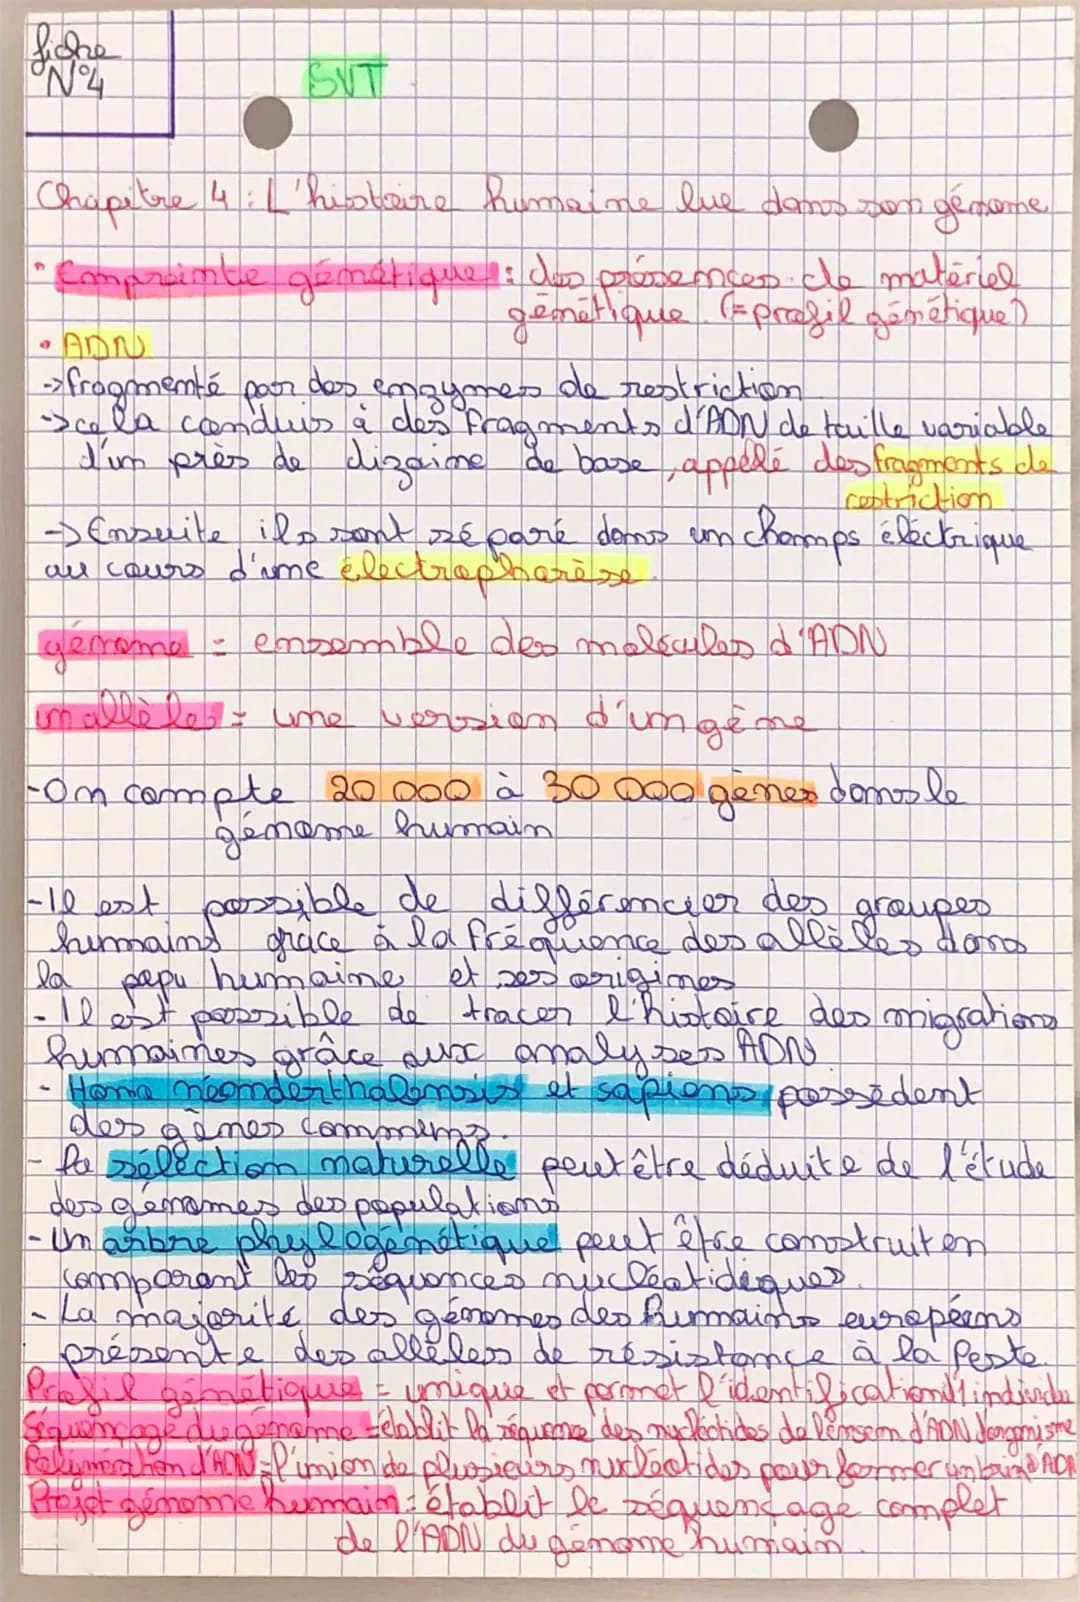 fiche
N°4
SVT
Chapitre 4 : L'histoire humaine lue dans son génome
• Empreinte génétique : des présences de matériel
génétique. (= profil génétique)
• ADN
-> fragmenté par des enzymes de restriction
-> cela conduis à des fragments d'ADN de taille variable
d'un près de dizaine de base, appellé des fragments de
restriction
-> Ensuite ils sont séparé dans un champs électrique
au cours d'une électrophorèse.
génome = ensemble des molécules d'ADN
un allèles = une version d'un gène
- On compte 20 000 à 30 000 gènes dans le
génome humain
- Il est possible de différencier des groupes
humains grâce à la fréquence des allèles dans
la popu humaine et ses origines
- Il est possible de tracer l'histoire des migrations
humaines grâce aux analyses ADN
- Homo néanderthalensis et sapiens possèdent
des gènes communs.
- La sélection naturelle peut être déduite de l'étude
des génomes des populations
- Un arbre phylogénétique peut être construit en
comparant les séquences nucléotidiques.
- La majorité des génomes des humains européens
présente des allèles de résistance à la Peste.
Profil génétique = unique et permet l'identification d'1 individu
Séquençage du génome = établit la séquence des nucléotides de l'ensem d'ADN d'organisme
Polymérisation d'ADN = l'union de plusieurs nucléotides pour former un brin d'ADN
Projet génome humain = établit le séquençage complet
de l'ADN du génome humain.